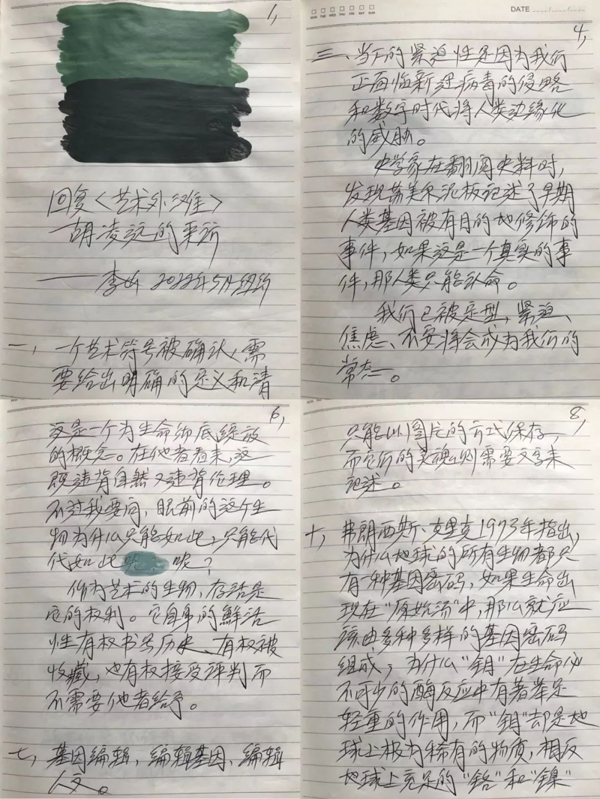 1,
回复《艺术外滩》
胡凌远的来访
——李山 2022年5月纽约
一、一个艺术符号被确认，需
要给出明确的定义和清
DATE
4,
三、当下的紧迫性是因为我们
正面临新冠病毒的侵略
和数字时代将人类边缘化
的威胁。
史学家在翻阅史料时，
发现苏美尔泥板记述了早期
人类基因被有目的地修饰的
事件，如果这是一个真实的事
件，那人类只能认命。
我们已被定型，紧迫、
焦虑、不安将会成为我们的
常态。
6,
这是一个为生命彻底绽放
的概念。在他者看来，这
既违背自然又违背伦理。
不过我要问，眼前的这个生
物为什么只能如此，只能代
代如此 呢？
作为艺术的生物，存活是
它的权利。它自带的鲜活
性有权书写历史、有权被
收藏，也有权接受评判而
不需要他者给予。
七、基因编辑，编辑基因，编辑
人文。
8,
只能以图片的方式保存，
而它们的灵魂则需要文字来
记述。
十、弗朗西斯·克里克1973年指出，
为什么地球的所有生物都只
有一种基因密码，如果生命出
现在“原始汤”中，那么就应
该由多种多样的基因密码
组成，为什么“钼”在生命必
不可少的酶反应中有着举足
轻重的作用，而“钼”却是地
球上极为稀有的物质，相反
地球上充足的“铬”和“镍”